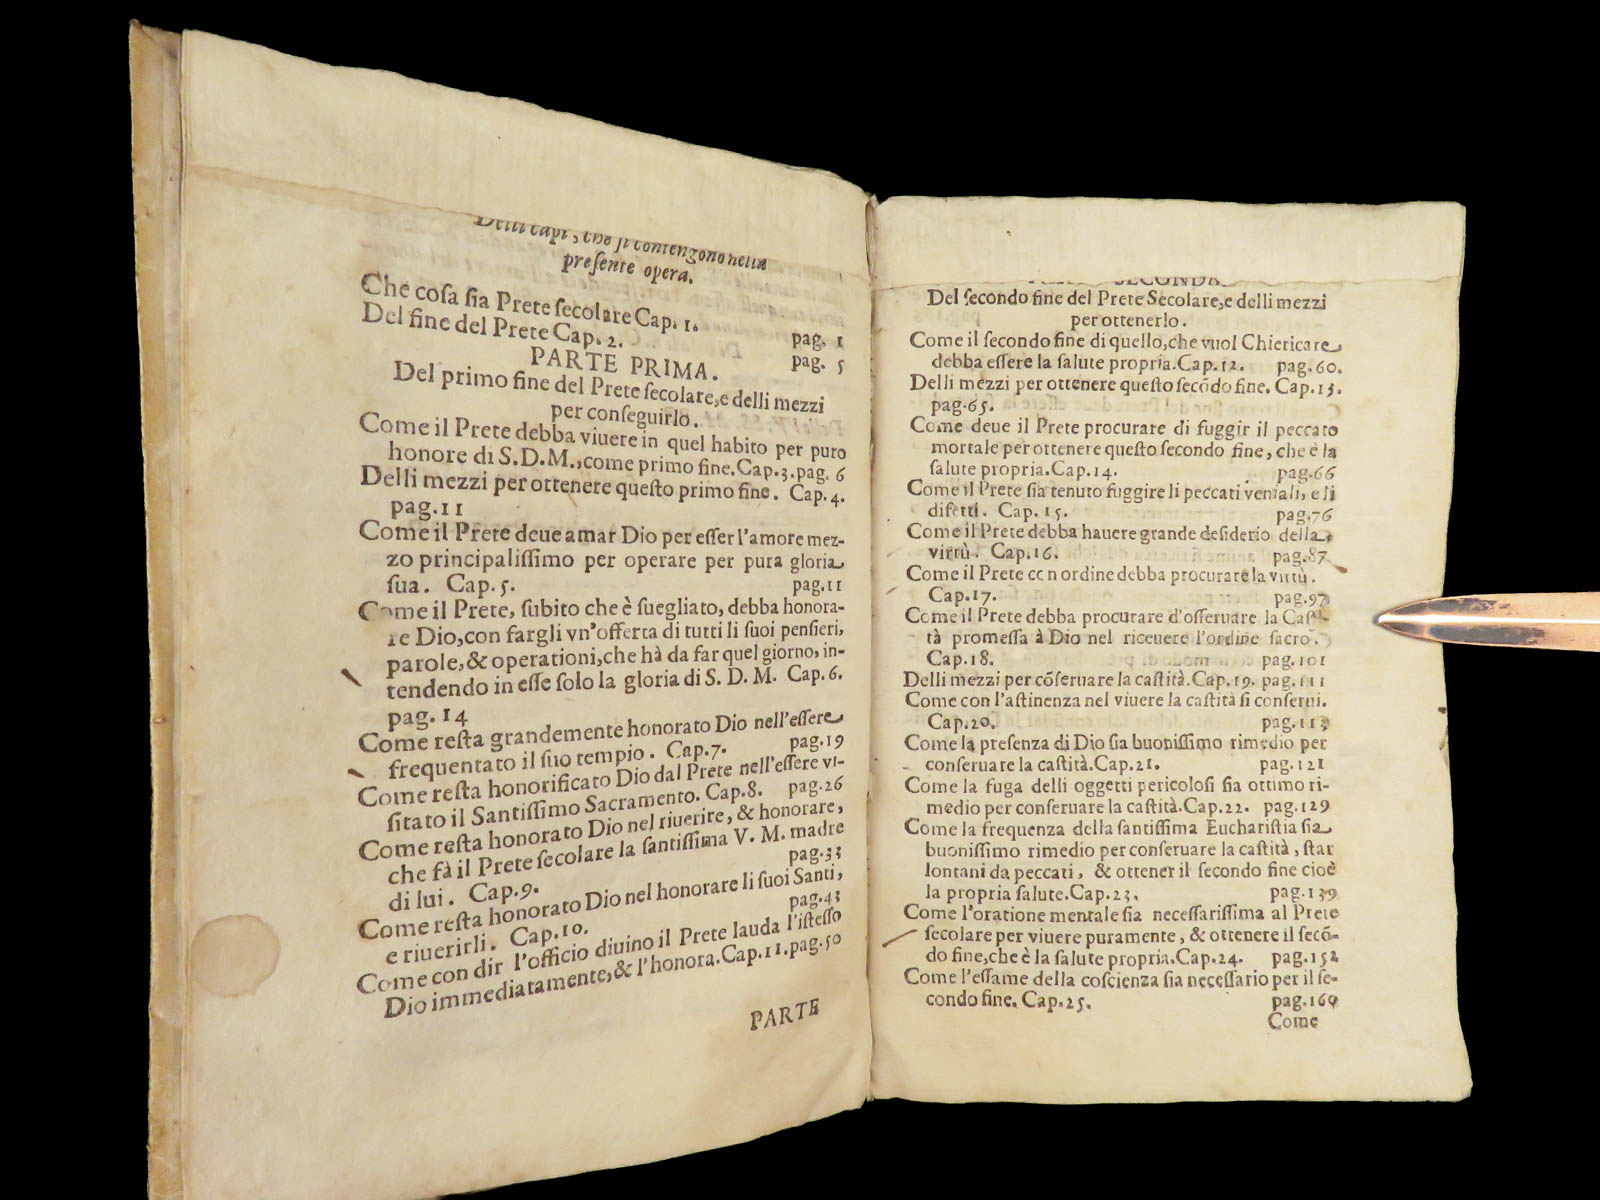 Delli capi, che ſi contengono nella
preſente opera.
Che coſa ſia Prete ſecolare Cap. 1. pag. 1
Del fine del Prete Cap. 2. pag. 5
PARTE PRIMA.
Del primo fine del Prete ſecolare, e delli mezzi
per conſeguirlo.
Come il Prete debba viuere in quel habito per puro
honore di S.D.M., come primo fine. Cap.3. pag. 6
Delli mezzi per ottenere queſto primo fine. Cap.4.
pag.11
Come il Prete deue amar Dio per eſſer l'amore mez-
zo principaliſſimo per operare per pura gloria
ſua. Cap.5. pag.11
Come il Prete, ſubito che è ſuegliato, debba honora-
re Dio, con fargli vn'offerta di tutti li ſuoi penſieri,
parole, & operationi, che hà da far quel giorno, in-
tendendo in eſſe ſolo la gloria di S. D. M. Cap.6.
pag. 14
Come reſta grandemente honorato Dio nell'eſſere
frequentato il ſuo tempio. Cap.7. pag.19
Come reſta honorificato Dio dal Prete nell'eſſere vi-
ſitato il Santiſſimo Sacramento. Cap.8. pag.26
Come reſta honorato Dio nel riuerire, & honorare,
che fà il Prete ſecolare la ſantiſſima V. M. madre
di lui. Cap.9. pag.33
Come reſta honorato Dio nel honorare li ſuoi Santi,
e riuerirli. Cap.10. pag.43
Come con dir l'officio diuino il Prete lauda l'iſteſſo
Dio immediatamente, & l'honora. Cap.11. pag.50
PARTE
SECONDA.
Del ſecondo fine del Prete Secolare, e delli mezzi
per ottenerlo.
Come il ſecondo fine di quello, che vuol Chiericare
debba eſſere la ſalute propria. Cap.12. pag.60.
Delli mezzi per ottenere queſto ſecõdo fine. Cap.13.
pag.65.
Come deue il Prete procurare di fuggir il peccato
mortale per ottenere queſto ſecondo fine, che è la
ſalute propria. Cap.14. pag.66
Come il Prete ſia tenuto fuggire li peccati veniali, e li
difetti. Cap. 15. pag.76
Come il Prete debba hauere grande deſiderio della
virtù. Cap.16. pag.87
Come il Prete con ordine debba procurare la virtù.
Cap.17. pag.97
Come il Prete debba procurare d'oſſeruare la Caſti-
tà promeſſa à Dio nel riceuere l'ordine ſacro.
Cap.18. pag.101
Delli mezzi per cõſeruare la caſtità. Cap.19. pag.111
Come con l'aſtinenza nel viuere la caſtità ſi conſerui.
Cap.20. pag.113
Come la preſenza di Dio ſia buoniſſimo rimedio per
conſeruare la caſtità. Cap.21. pag.121
Come la fuga delli oggetti pericoloſi ſia ottimo ri-
medio per conſeruare la caſtità. Cap.22. pag.129
Come la frequenza della ſantiſſima Euchariſtia ſia
buoniſſimo rimedio per conſeruare la caſtità, ſtar
lontani da peccati, & ottener il ſecondo fine cioè
la propria ſalute. Cap.23. pag.139
Come l'oratione mentale ſia neceſſariſſima al Prete
ſecolare per viuere puramente, & ottenere il ſecõ-
do fine, che è la ſalute propria. Cap.24. pag.152
Come l'eſſame della coſcienza ſia neceſſario per il ſe-
condo fine. Cap.25. pag.160
Come